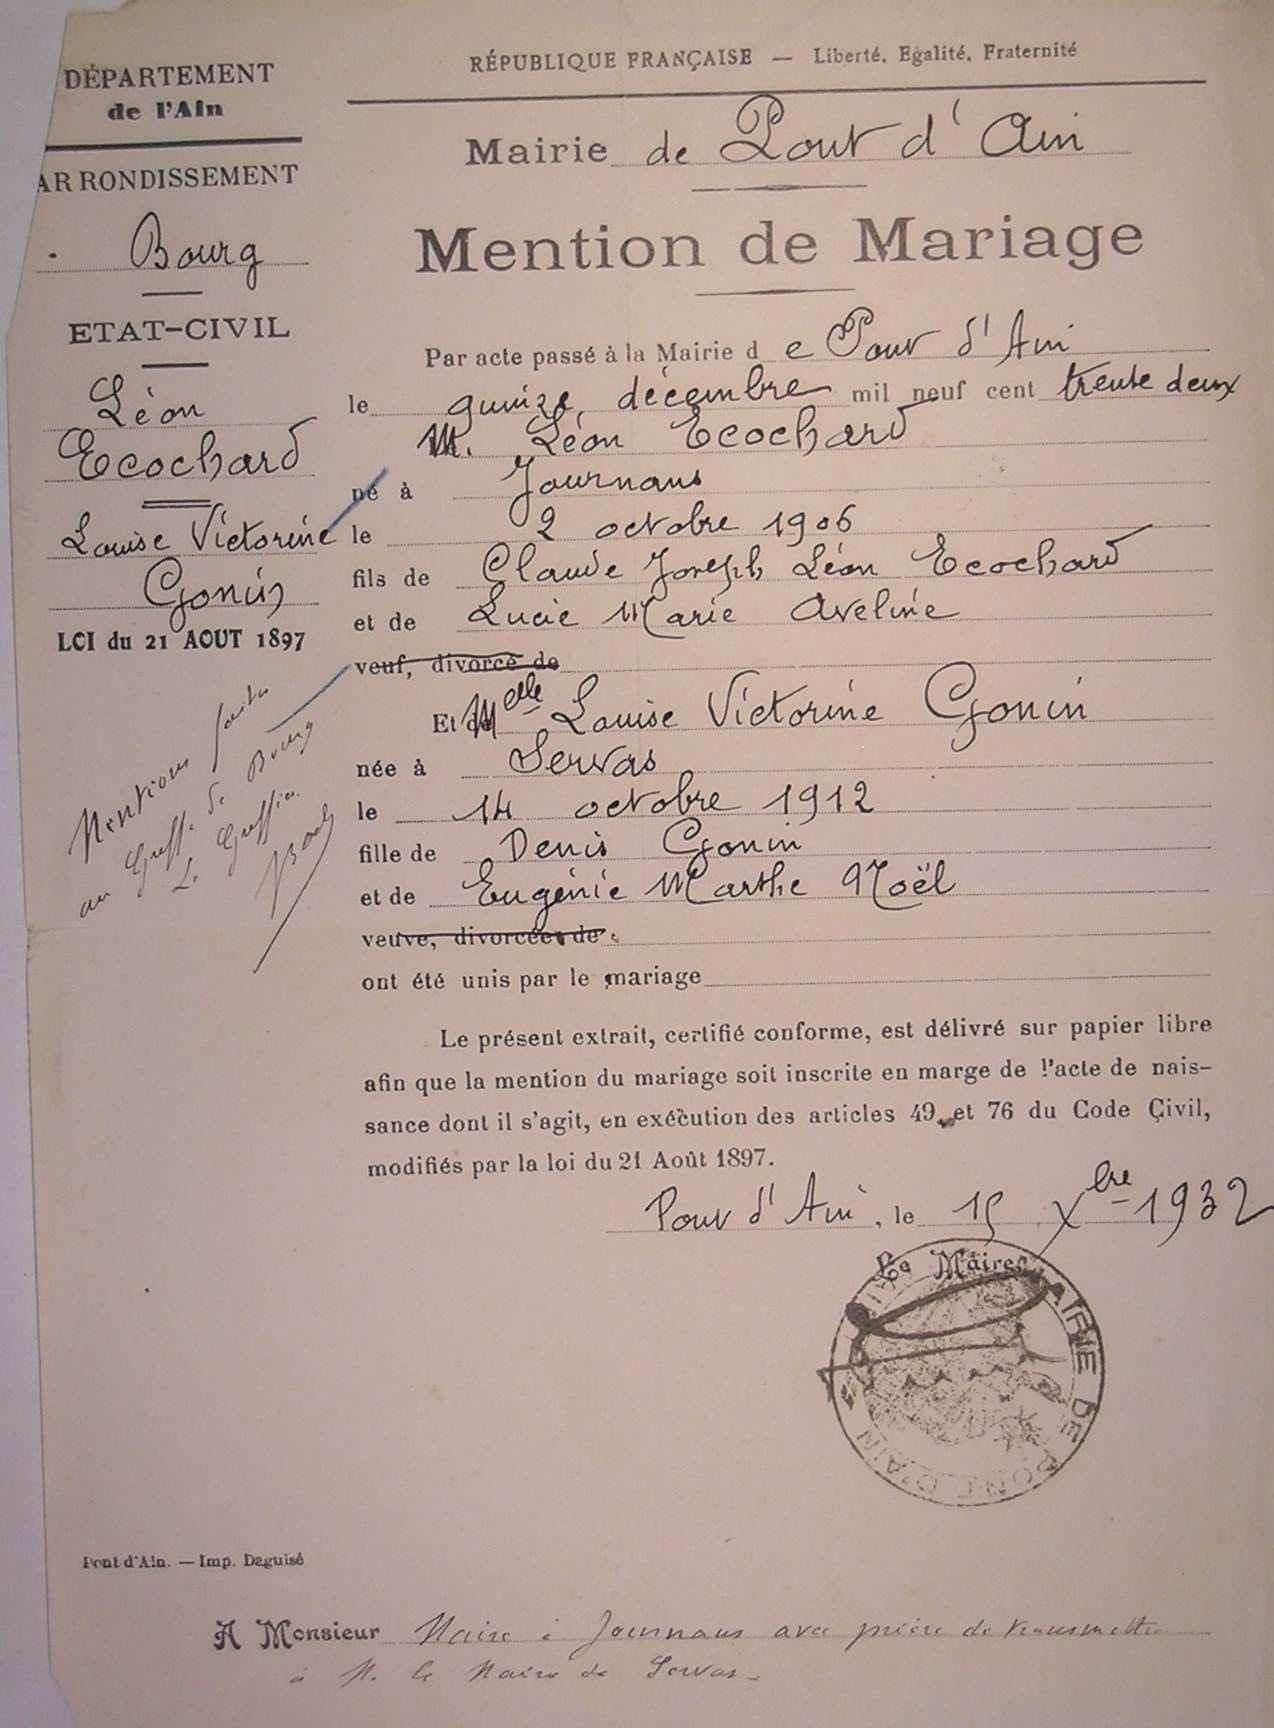 DÉPARTEMENT
de l'Ain
ARRONDISSEMENT
Bourg
ETAT-CIVIL
Léon
Ecochard
Louise Victorine
Gonin
LOI du 21 AOUT 1897
Mentions faites
au Greffe de Bourg
Le Greffier
RÉPUBLIQUE FRANÇAISE — Liberté, Egalité, Fraternité
Mairie de Pont d'Ain
Mention de Mariage
Par acte passé à la Mairie de Pont d'Ain
le quinze décembre mil neuf cent trente deux
M. Léon Ecochard
né à Journans
le 2 octobre 1906
fils de Claude Joseph Léon Ecochard
et de Lucie Marie Aveline
veuf, divorcé de
Et Melle Louise Victorine Gonin
née à Servas
le 14 octobre 1912
fille de Denis Gonin
et de Eugénie Marthe Noël
veuve, divorcée de
ont été unis par le mariage
Le présent extrait, certifié conforme, est délivré sur papier libre
afin que la mention du mariage soit inscrite en marge de l'acte de nais-
sance dont il s'agit, en exécution des articles 49 et 76 du Code Civil,
modifiés par la loi du 21 Août 1897.
Pont d'Ain, le 15 Xbre 1932
Le Maire
MAIRIE DE PONT D'AIN
Pont d'Ain. — Imp. Daguisé
A Monsieur Maire à Journans avec prière de transmettre
à M. le Maire de Servas